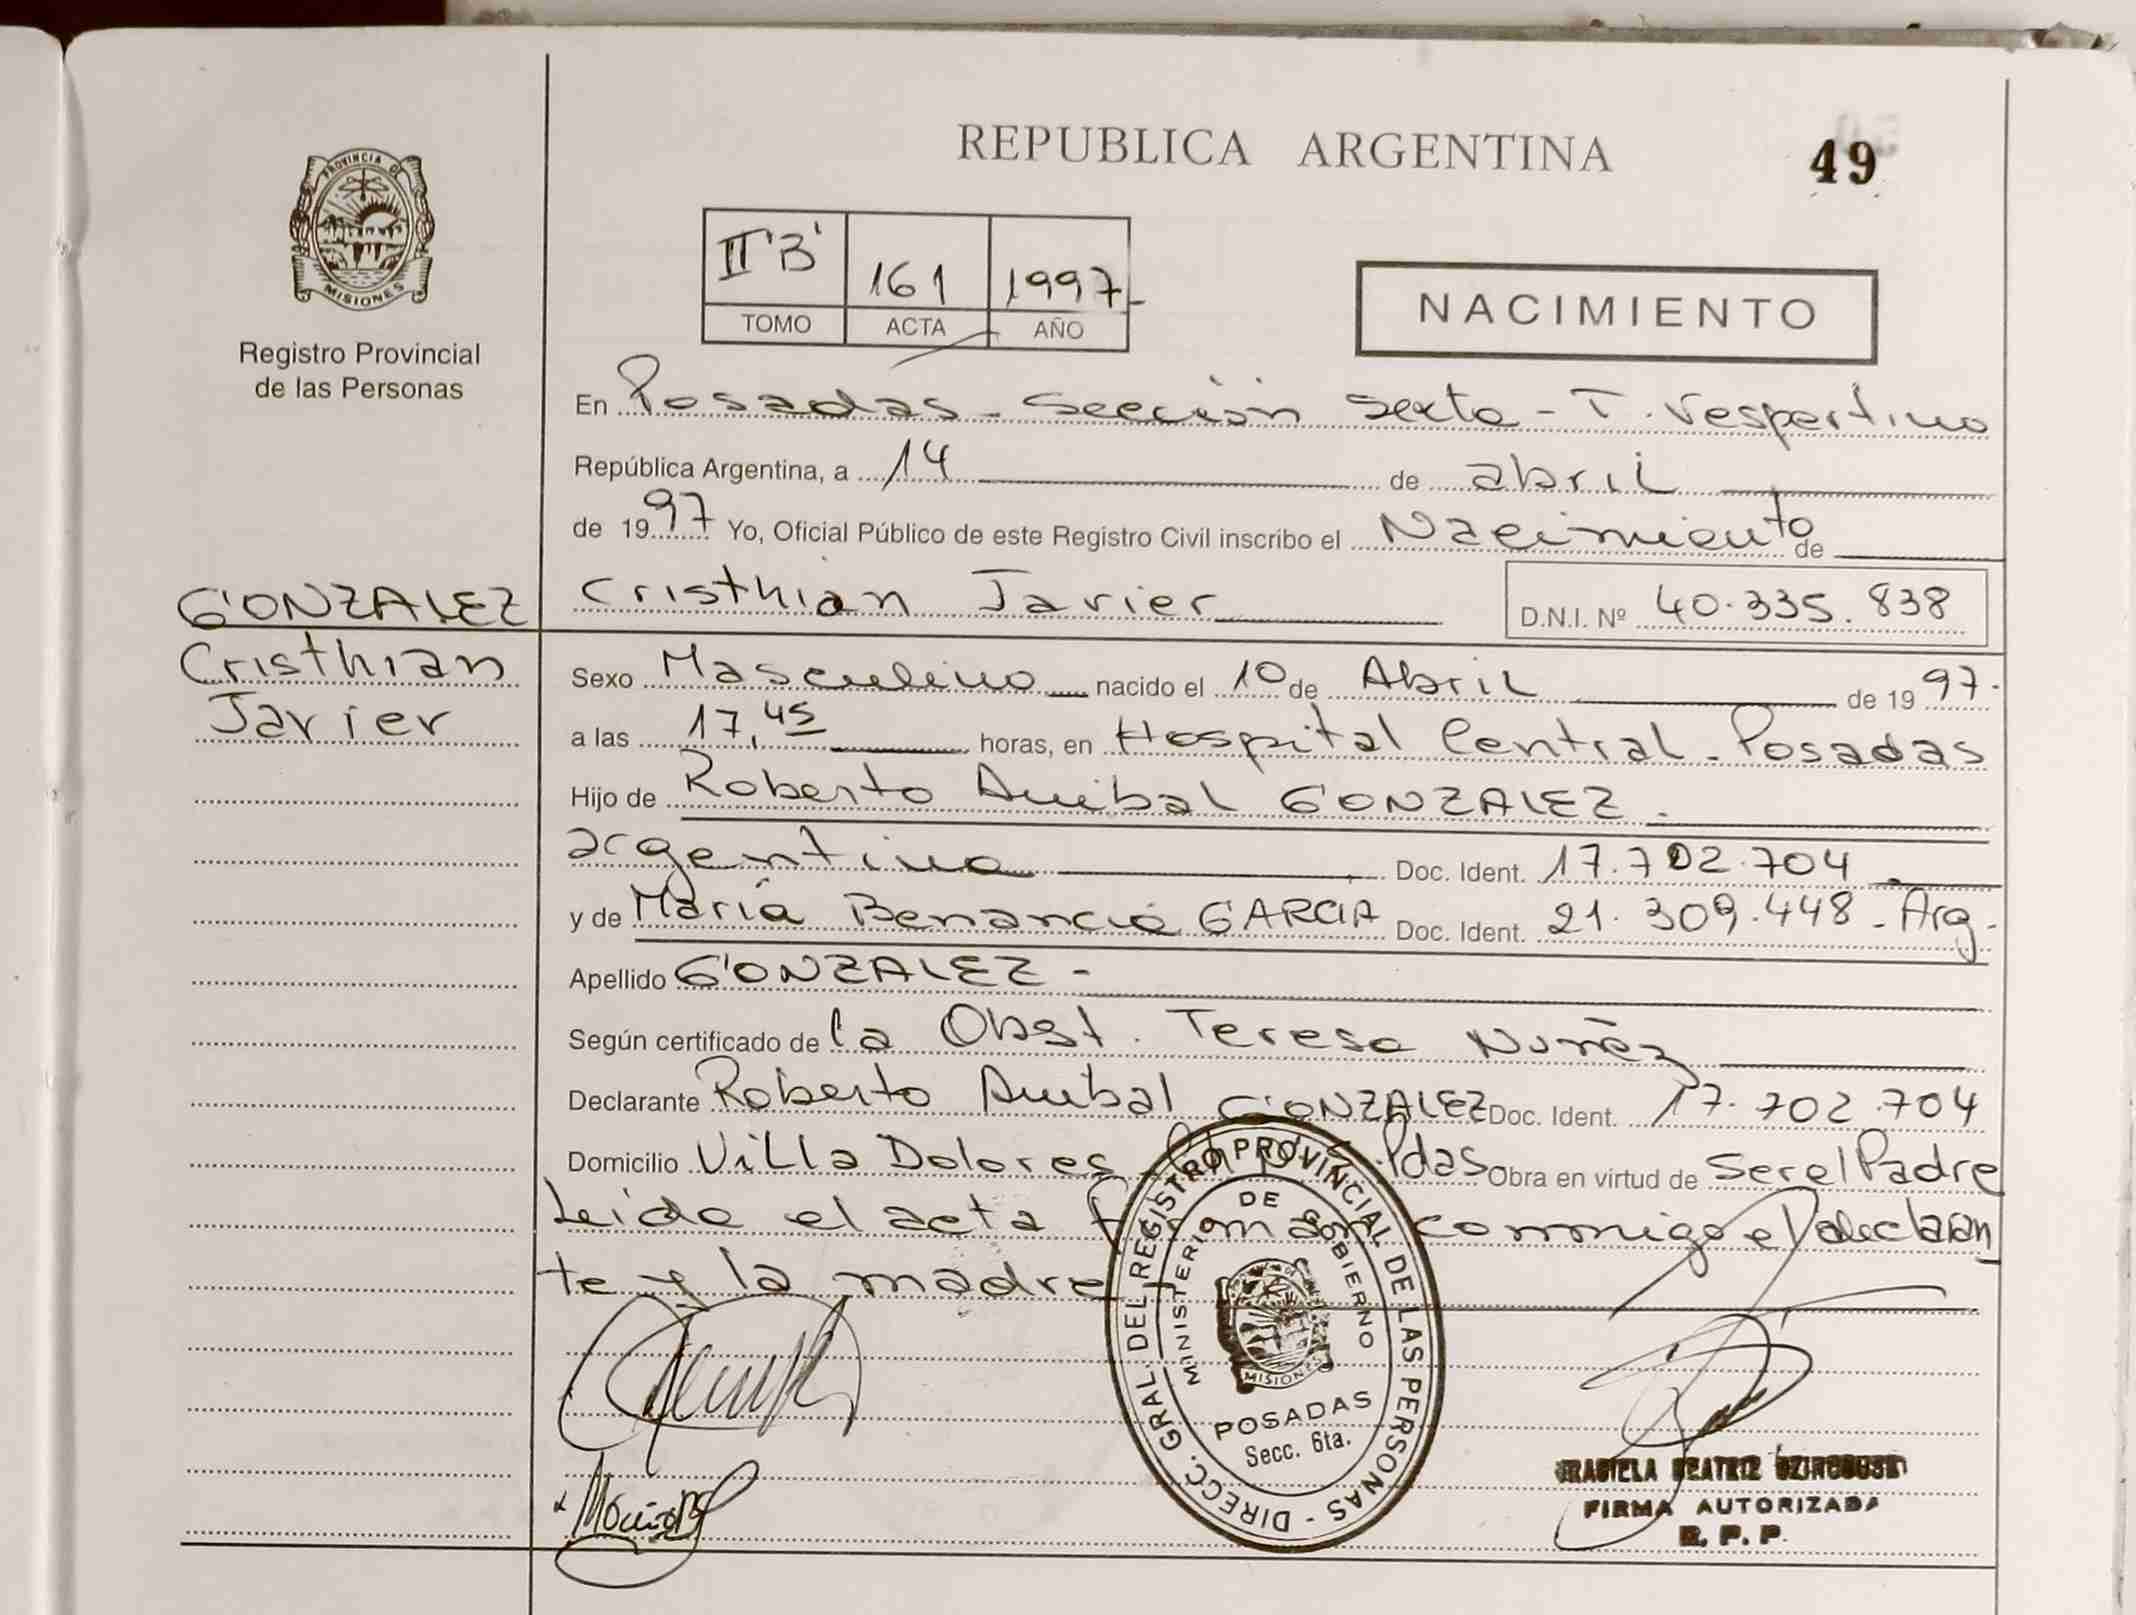 REPUBLICA ARGENTINA
49
PROVINCIA DE
MISIONES
Registro Provincial
de las Personas
II 'B' 161 1997
TOMO ACTA AÑO
NACIMIENTO
En Posadas - Sección Sexta - T. Vespertino
República Argentina, a 14 de abril
de 1997 Yo, Oficial Público de este Registro Civil inscribo el Nacimiento de
Cristhian Javier D.N.I. Nº 40.335.838
GONZALEZ
Cristhian
Javier
Sexo Masculino nacido el 10 de Abril de 1997.
a las 17,45 horas, en Hospital Central - Posadas
Hijo de Roberto Anibal GONZALEZ.
argentino Doc. Ident. 17.702.704
y de María Benancia GARCIA Doc. Ident. 21.309.448 - Arg.
Apellido GONZALEZ -
Según certificado de la Obst. Teresa Nuñez
Declarante Roberto Anibal GONZALEZ Doc. Ident. 17.702.704
Domicilio Villa Dolores Pdas Obra en virtud de Ser el Padre
Leida el acta firman conmigo el declaran
te y la madre
DIRECC. GRAL. DEL REGISTRO PROVINCIAL DE LAS PERSONAS -
MINISTERIO DE GOBIERNO
MISIONES
POSADAS
Secc. 6ta.
GRACIELA BEATRIZ
FIRMA AUTORIZADA
R. P. P.